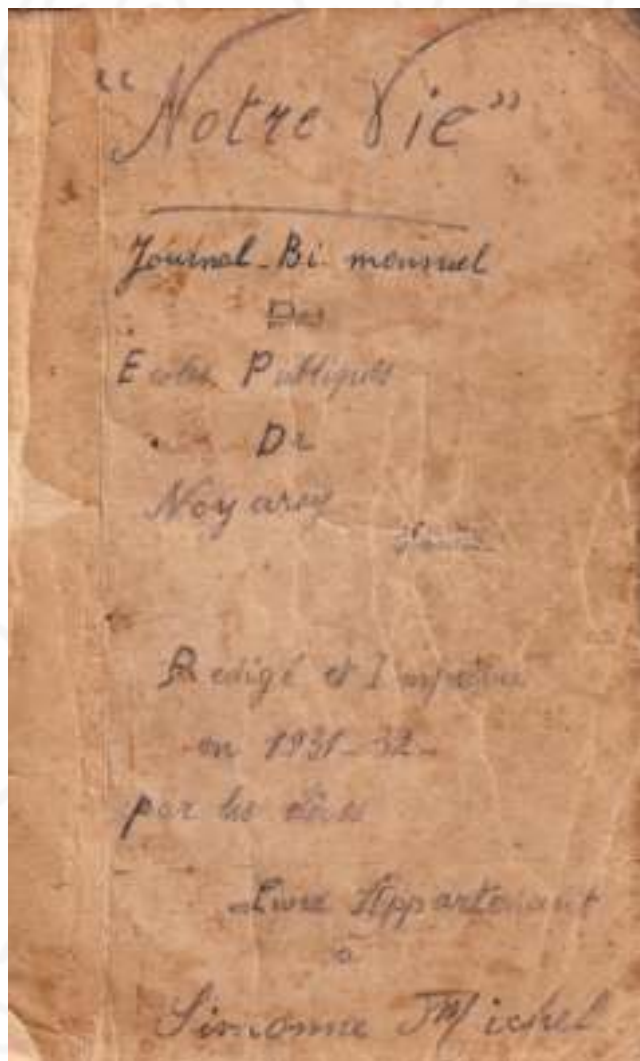 "Notre Vie"
Journal-Bi mensuel
Des
Ecoles Publiques
De
Noyarey
Redigé et Imprimé
en 1931-32-
par les élèves
Livre Appartenant
à
Simonne Michel